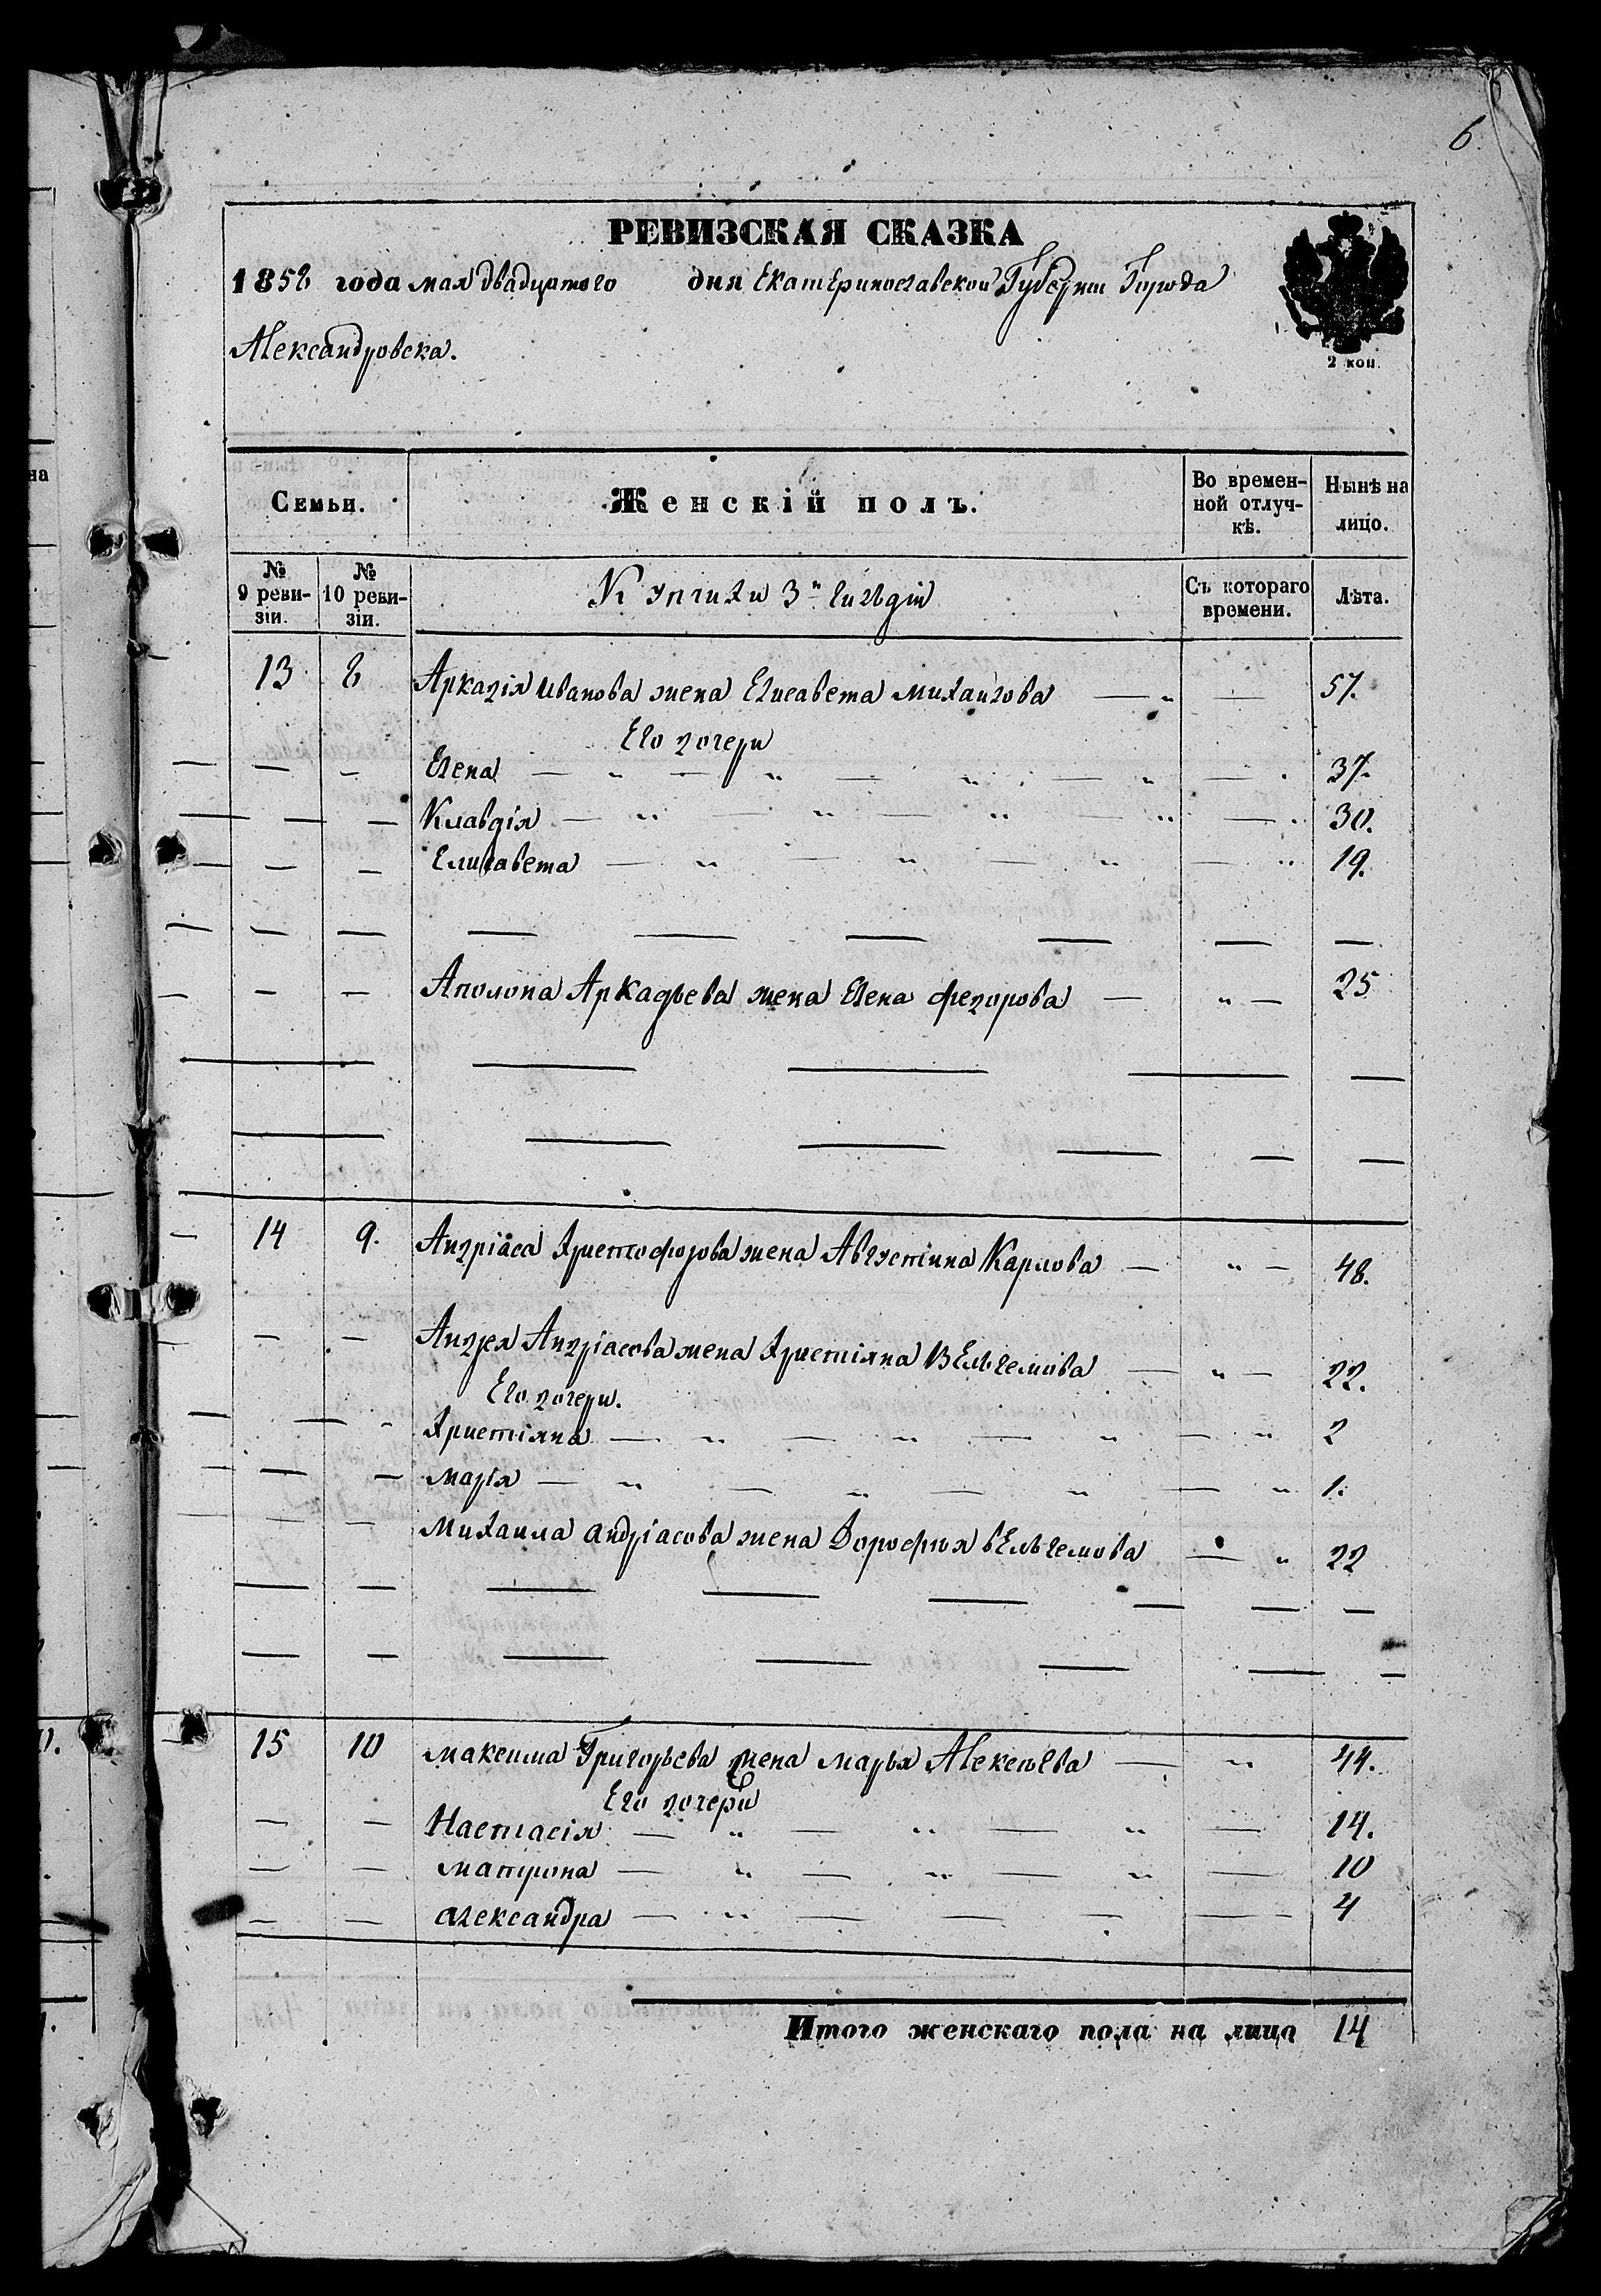 6.
РЕВИЗСКАЯ СКАЗКА
1858 года мая двадцатого дня Екатеринославской Губернии Города
Александровска.
2 коп.
на
Семьи.
Женскій полъ.
Во времен-
ной отлуч-
кѣ.
Нынѣ на
лицо.
№
9 реви-
зіи.
№
10 реви-
зіи.
Купчихи 3й гильдіи
Съ котораго
времени.
Лѣта.
13 8 Аркадія Иванова жена Елисавета Михайлова — " — 57.
Его дочери
— — Елена — " — " — " — " — 37.
— — Клавдія — " — " — " — " — " 30.
— — Елисавета — " — " — " — " 19.
— — Аполона Аркадьева жена Елена Федорова — " — 25
14 9. Андріаса Христофорова жена Августина Карлова — " — 48.
— — Андрея Андріасова жена Христіяна Вельгемова — " — 22.
Его дочери.
— — Христіяна — " — " — " — " 2
— — Марія — " — " — " — " 1.
— — Михаила Андріасова жена Дорофия Вельгемова — " 22
15 10 Максима Григорьева жена Марья Алексеева — " 44.
Его дочери
— — Настасія — " — " — " — 14.
— — Матрона — " — " — " — 10
— — Александра — " — — — — 4
Итого женскаго пола на лицо 14